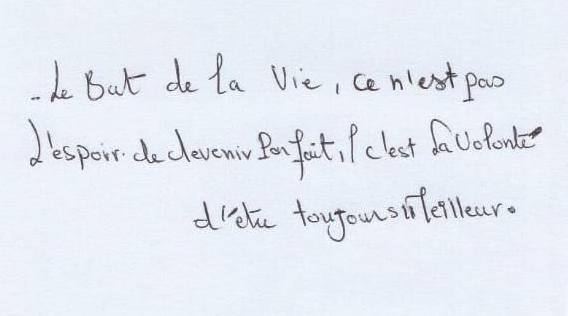 - Le But de la Vie, ce n'est pas
L'espoir de devenir Parfait, c'est La Volonté
d'être toujours Meilleur.